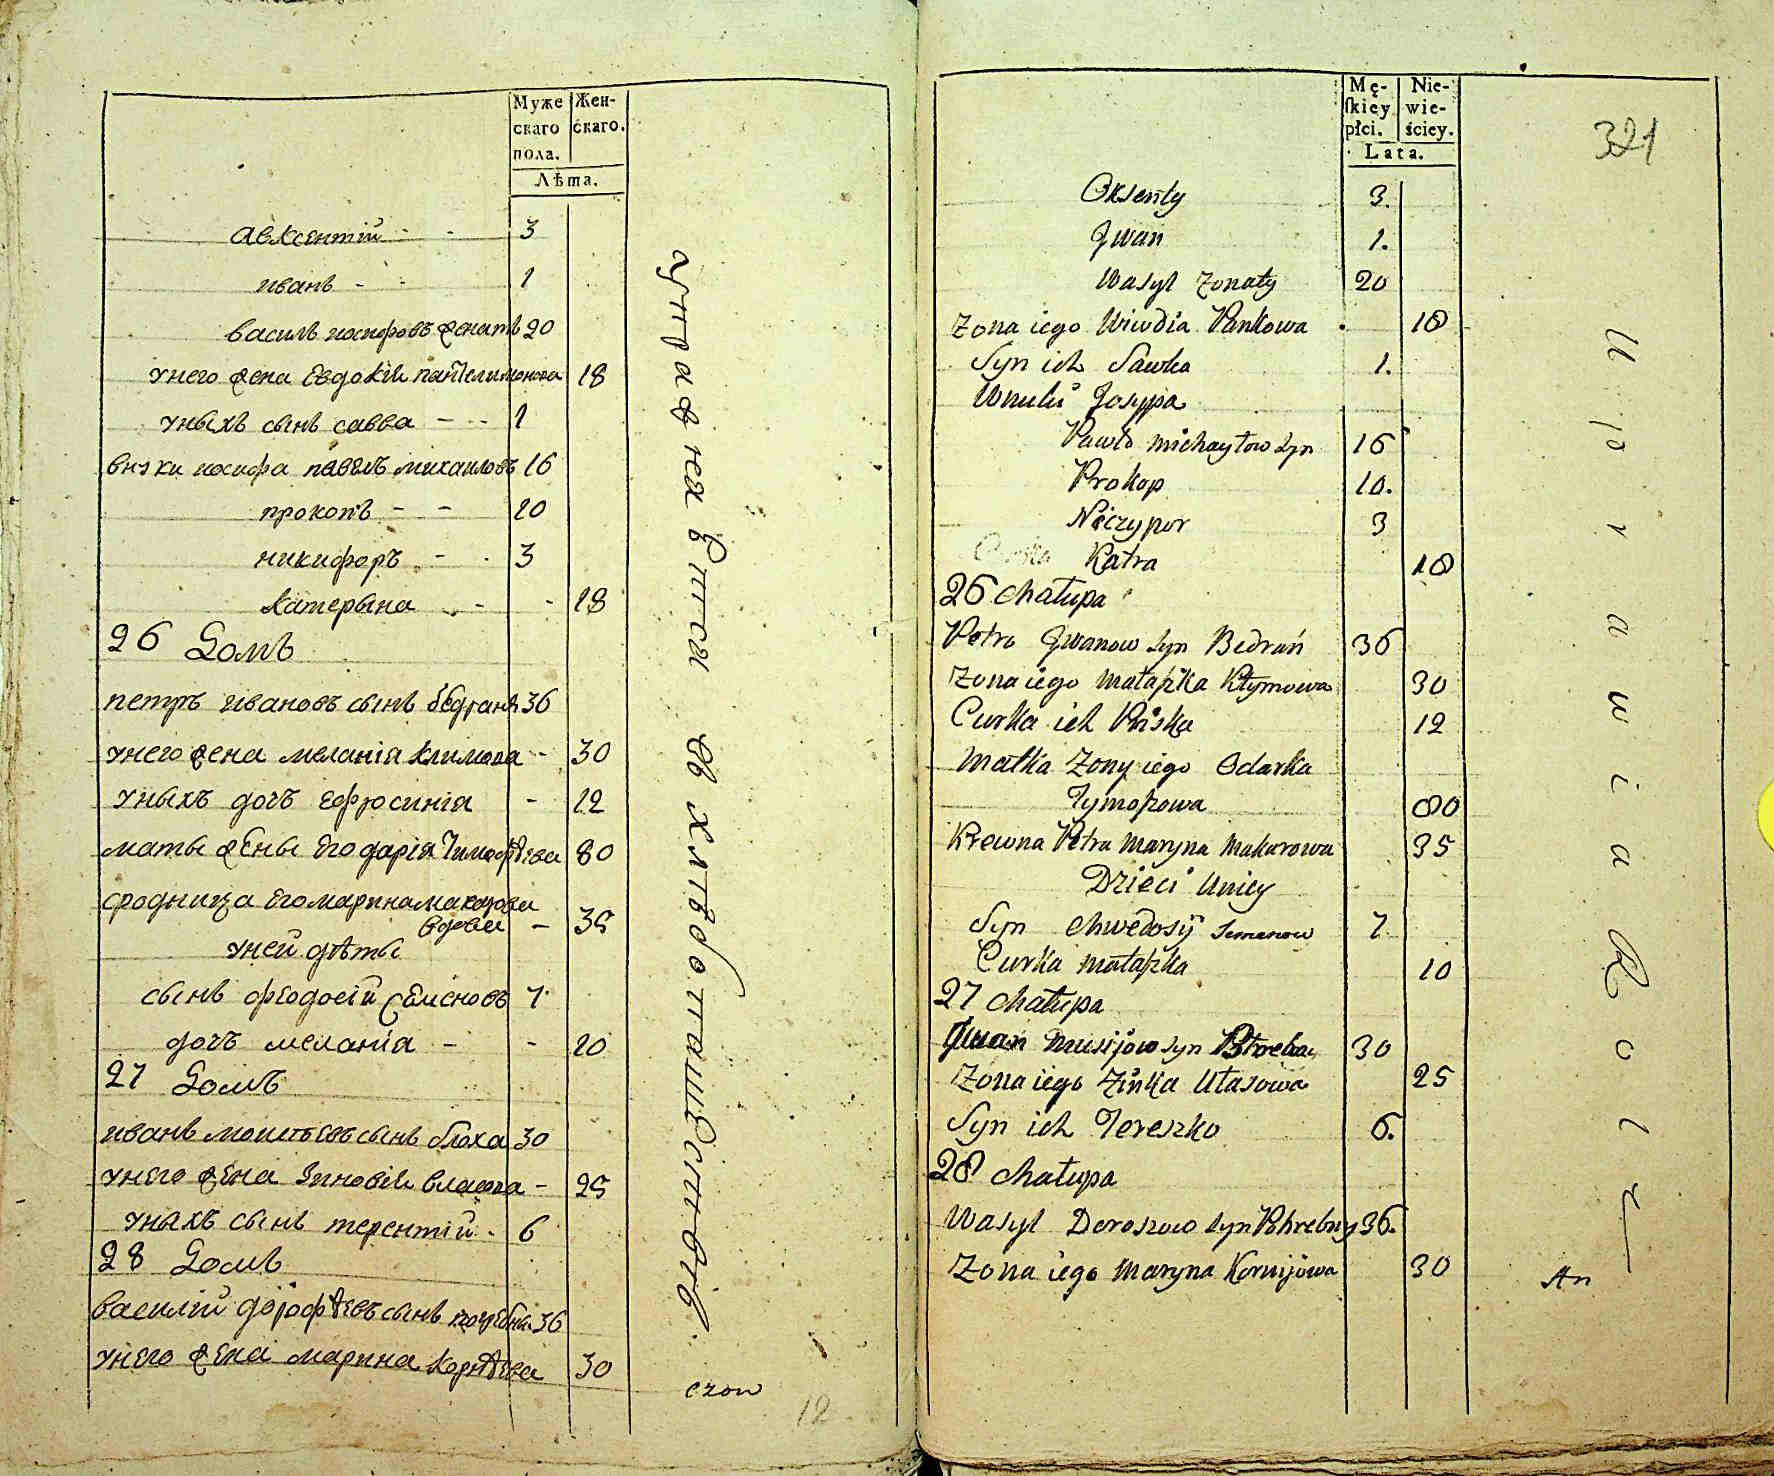 Муже
скаго
пола.
Жен-
скаго.
Лѣта.
авксентій - - 3
иванъ - - 1
василь иосифовъ женатъ 20
унего жена Евдокія пантелимонова 18
уныхъ сынъ савва - - 1
внуки иосифа павелъ михаиловъ 16
прокопъ - - 10
никифоръ - - 3
катерына - - 18
26 Домъ
петръ ивановъ сынъ бедранъ 36
унего жена меланія климова - 30
уныхъ дочъ ефросинія - 12
маты жены его дарія Тимофѣева 80
сродница его марина макарова
вдова - 35
уней дѣты
сынъ феодосій семеновъ 7
дочъ меланія - - 10
27 Домъ
иванъ моисѣевъ сынъ блоха 30
унего жена Зиновія власова - 25
уныхъ сынъ терентій - 6
28 Домъ
василій дорофѣевъ сынъ погребны 36
унего жена марина корнѣева 30
упражняются въ хлѣбопашествѣ.
czon
12
Mę-
skiey
płci.
Nie-
wie-
ściey.
Lata.
321
Oksenty 3.
Jwan 1.
Wasyl Zonaty 20
Zona iego Wiwdia Pankowa 18
Syn ich Sawka 1.
Wnuki Josypa
Pawło Michayłow syn 16
Prokop 10.
Niczypor 3
Curka Katra 18
26 Chałupa
Petro Jwanow syn Bedrań 36
Zona iego Małaszka Kłymowa 30
Curka ich Priska 12
Matka Zony iego Odarka
Tymoszowa 80
Krewna Petra Maryna Makarowa 35
Dzieci Uniey
Syn Chwedosÿ Semenow 7
Curka Małaszka 10
27 Chałupa
Jwan Musijow syn Błocha 30
Zona iego Zinka Ułasowa 25
Syn ich Tereszko 6.
28 Chałupa
Wasyl Doroszow syn Pohrebny 36.
Zona iego Maryna Kornijowa 30
Uprawia Rolę
An